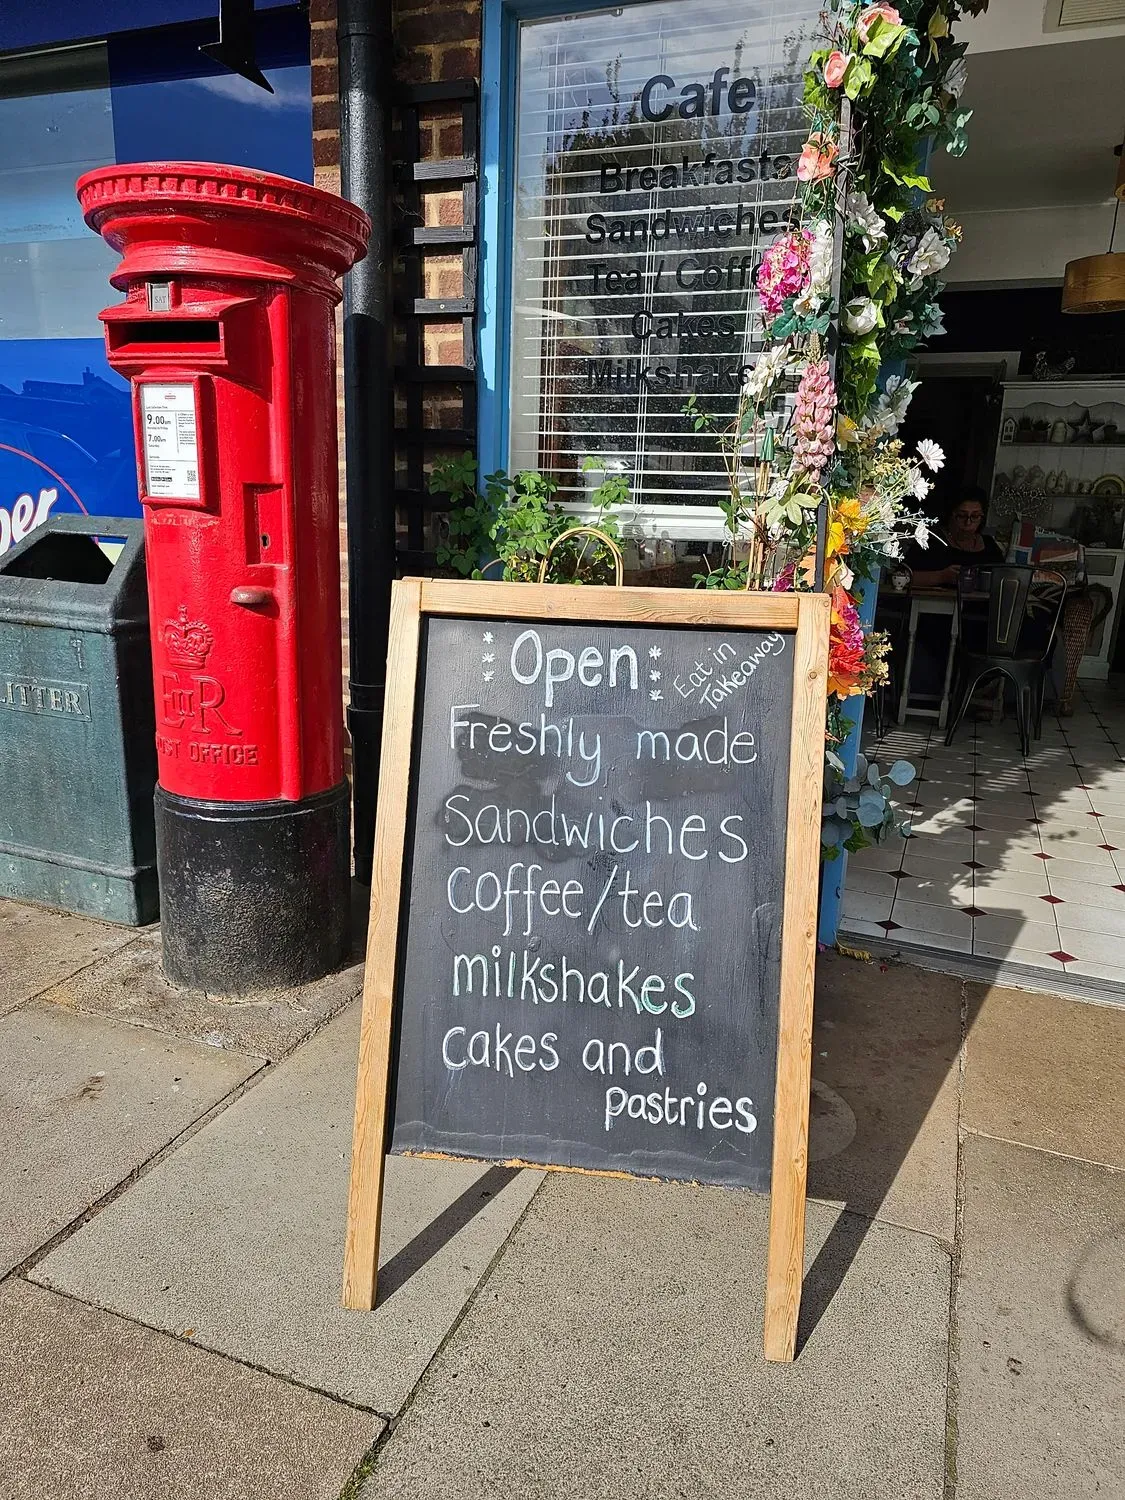 Cafe
Breakfasts
Sandwiches
Tea / Coffe
Cakes
Milkshake
SAT
9.00am
7.00am
per
LITTER
EIIR
POST OFFICE
Open
Eat in
Takeaway
Freshly made
Sandwiches
coffee/tea
milkshakes
cakes and
pastries